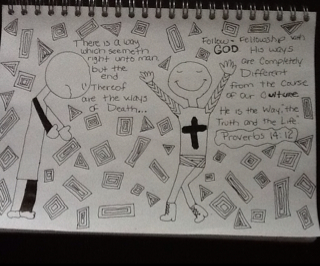 There is a way
which seemeth
right unto man
but the
end
Thereof
are the ways
of Death...
Follow - Fellowship with
GOD His ways
are Completely
Different
from the Cause
of our Culture
He is the Way, "the
Truth and the Life"
Proverbs 14:12